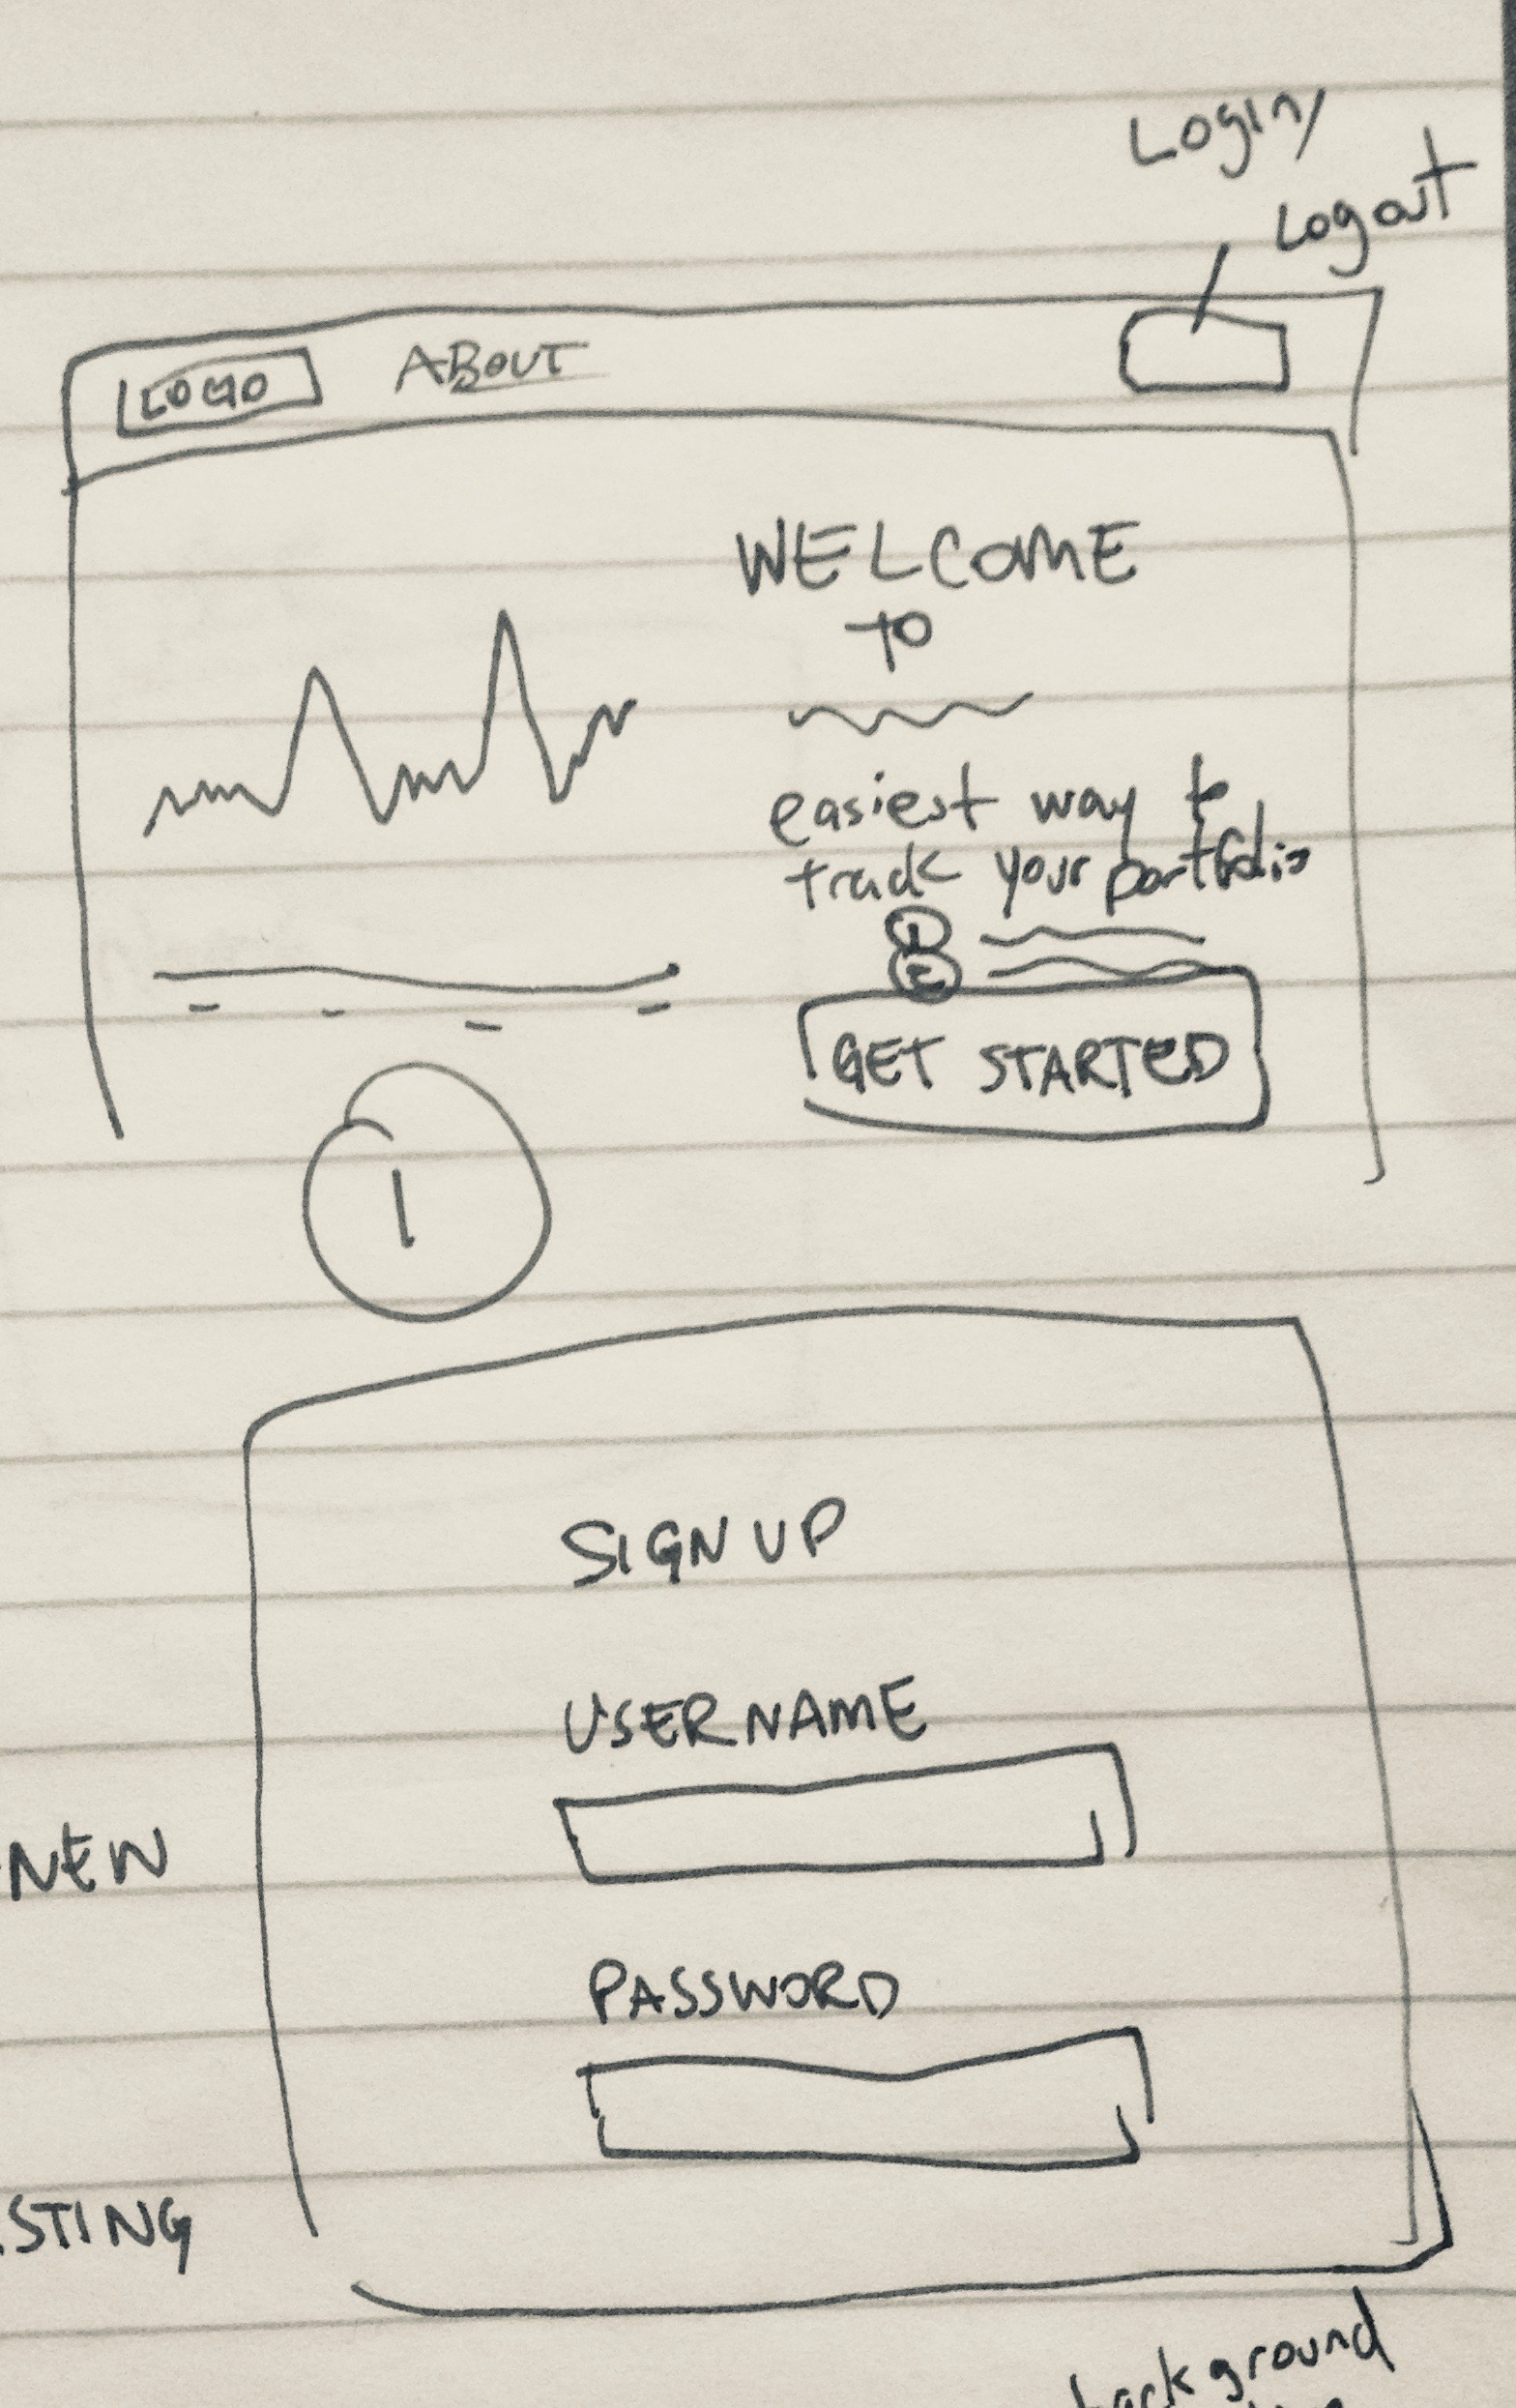 Login/
Logout
LOGO ABOUT
WELCOME
to
easiest way to
track your portfolio
1
2
GET STARTED
1
SIGN UP
USERNAME
NEW
PASSWORD
STING
background